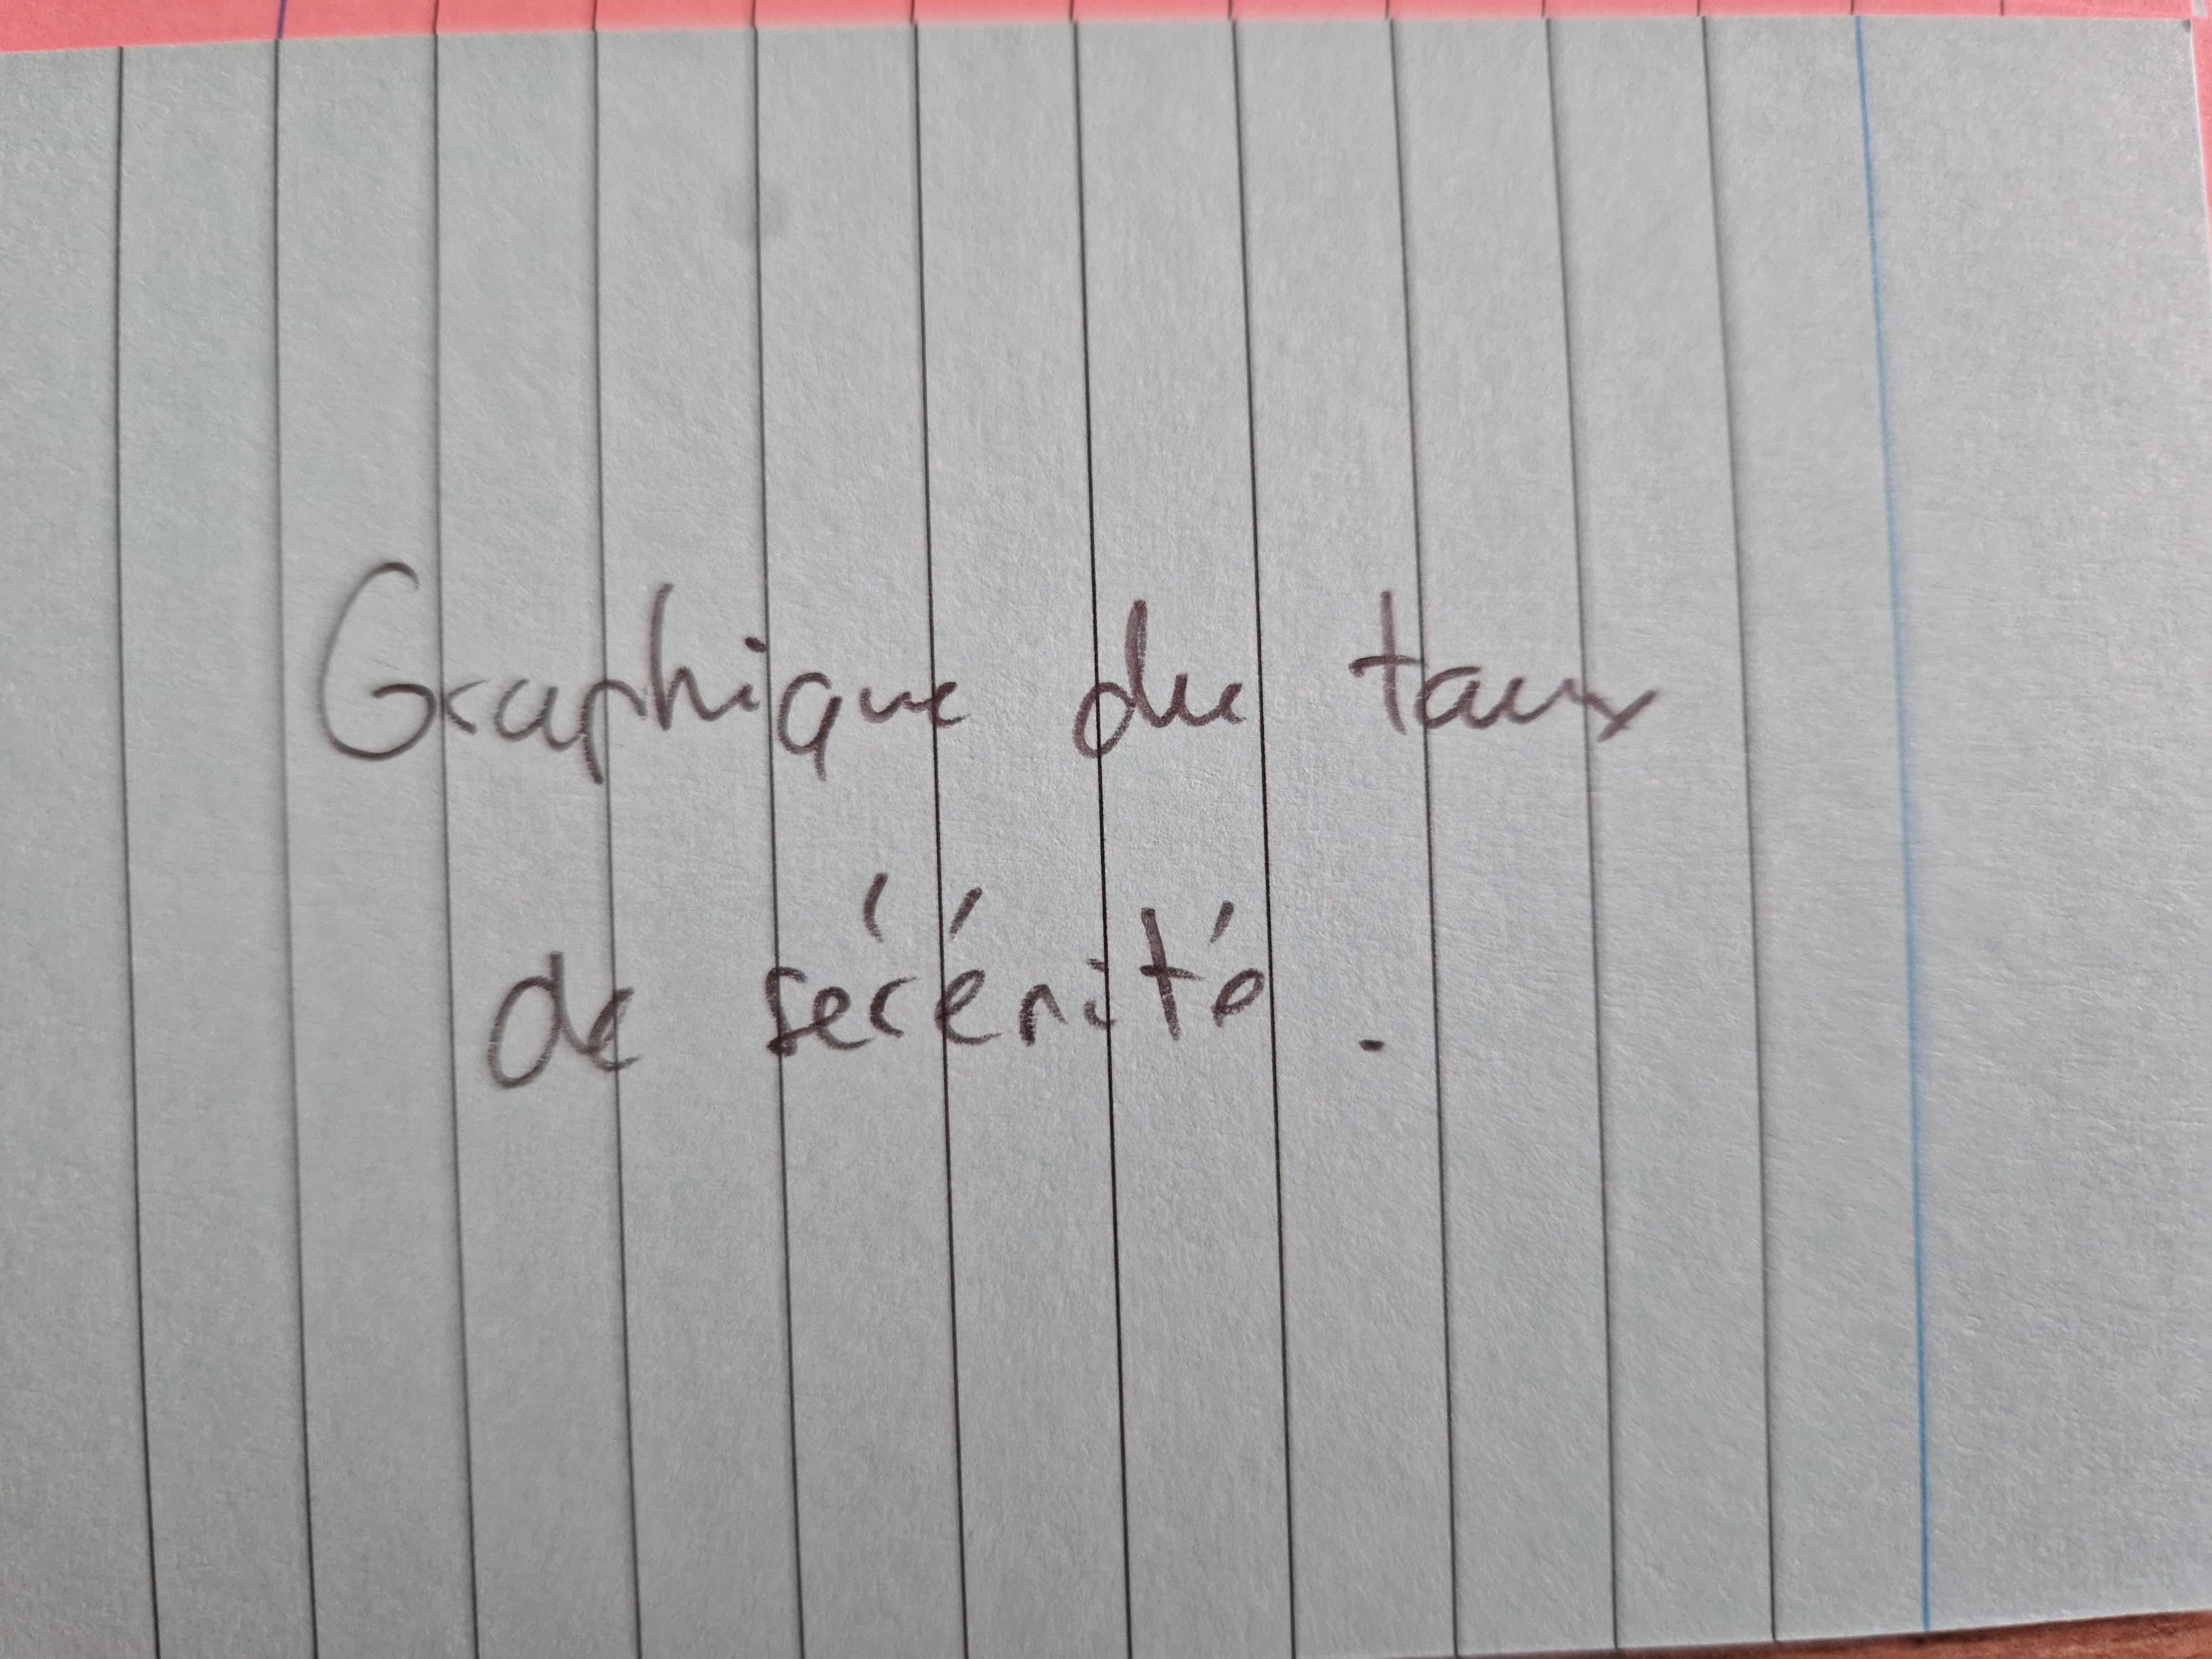 Graphique du taux
de sérénité.